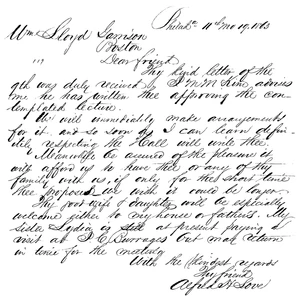 Philada 11th mo 19. 1863
Wm Lloyd Garrison
Boston
Dear friend
Thy kind letter of the
9th was duly received & J M McKim advises
me he has written thee approving the con-
templated lecture.
We will immediately make arrangements
for it, and so soon as I can learn defin-
itely respecting the Hall will write thee.
Meanwhile be assured of the pleasure it
will afford us to have thee or any of thy
family with us, if only for the short time
thee proposes. We wish it could be longer.
Thy good wife & daughter will be especially
welcome either to my house or father's. My
sister Lydia is at present paying a
visit at J. E. Burrages but may return
in time for the meeting
With the kindest regards
Thy friend
Alfred H Love